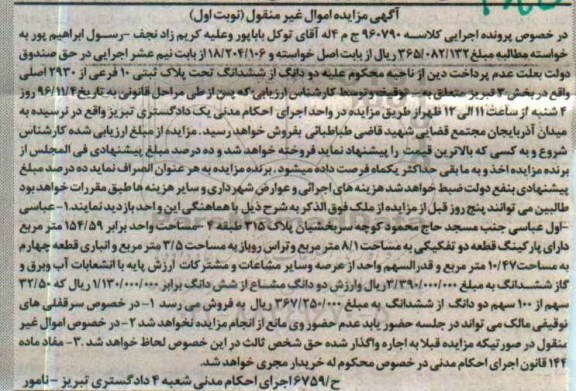 آگهی مزایده اموال غیر منقول (نوبت اول)
در خصوص پرونده اجرایی کلاسه ۹۶۰۷۹۰ ج م ۴ له آقای توکل باباپور وعلیه کریم زاد نجف -رسول ابراهیم پور به
خواسته مطالبه مبلغ ۳۶۵/۰۸۲/۱۳۲ ریال از بابت اصل خواسته و ۱۸/۲۰۴/۱۰۶ از بابت نیم عشر اجرایی در حق صندوق
دولت بعلت عدم پرداخت دین از ناحیه محکوم علیه دو دانگ از ششدانگ تحت پلاک ثبتی ۱۰ فرعی از ۲۹۳۰ اصلی
واقع در بخش ۳ تبریز متعلق به توقیف وتوسط کارشناس ارزیابی که پس از طی مراحل قانونی به تاریخ ۹۶/۱۱/۴ روز
۴ شنبه از ساعت ۱۱ الی ۱۲ ظهر از طریق مزایده در واحد اجرای احکام مدنی یک دادگستری تبریز واقع در نرسیده به
میدان آذربایجان مجتمع قضایی شهید قاضی طباطبائی بفروش خواهد رسید. مزایده از مبلغ ارزیابی شده کارشناس
شروع و به کسی که بالاترین قیمت را پیشنهاد نماید فروخته خواهد شد و ده درصد مبلغ پیشنهادی فی المجلس از
برنده مزایده اخذ و به ما بقی حداکثر یکماه فرصت داده میشود. برنده مزایده به هر عنوان انصراف نماید ده درصد مبلغ
پیشنهادی بنفع دولت ضبط خواهد شد هزینه های اجرائی و عوارض شهرداری و سایر هزینه ها طبق مقررات خواهد بود
طالبین می توانند پنج روز قبل از مزایده از ملک فوق الذکر به شرح ذیل با هماهنگی این واحد بازدید نمایند.۱-عباسی
-اول عباسی جنب مسجد حاج محمود کوچه سربخشیان پلاک ۳۱۵ طبقه ۴ -مساحت واحد برابر ۱۵۴/۵۹ متر مربع
دارای پارکینگ قطعه دو تفکیکی به مساحت ۸/۱ متر مربع وتراس روباز به مساحت ۳/۵ متر مربع و انباری قطعه چهارم
به مساحت ۱۰/۴۷ متر مربع و قدرالسهم واحد از عرصه وسایر مشاعات و مشترکات ارزش پایه با انشعابات آب وبرق و
گاز ششدانگ به مبلغ ۳/۳۹۰/۰۰۰/۰۰۰ ریال وارزش دو دانگ مشاع از شش دانگ برابر ۱/۱۳۰/۰۰۰/۰۰۰ ریال که ۳۲/۵۰
سهم از ۱۰۰ سهم دو دانگ از ششدانگ به مبلغ ۳۶۷/۲۵۰/۰۰۰ ریال به فروش می رسد ۱- در خصوص سرقفلی های
توقیفی مالک می تواند در جلسه حضور یابد عدم حضور وی مانع از انجام مزایده نخواهد شد ۲- در خصوص اموال غیر
منقول در صورتیکه مزایده قبلا به اجاره واگذار شده حق شخص ثالث در این خصوص لحاظ خواهد شد .۳- مفاد ماده
۱۴۴ قانون اجرای احکام مدنی در خصوص محکوم له خریدار مجری خواهد شد.
ح/۶۷۵۹ اجرای احکام مدنی شعبه ۴ دادگستری تبریز - نامور